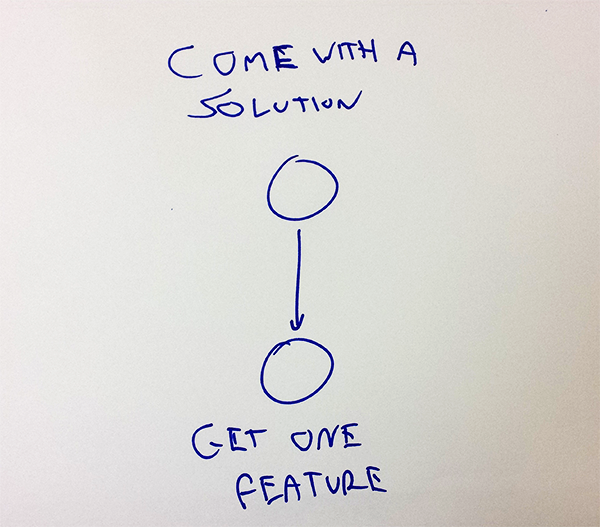 COME WITH A
SOLUTION
GET ONE
FEATURE